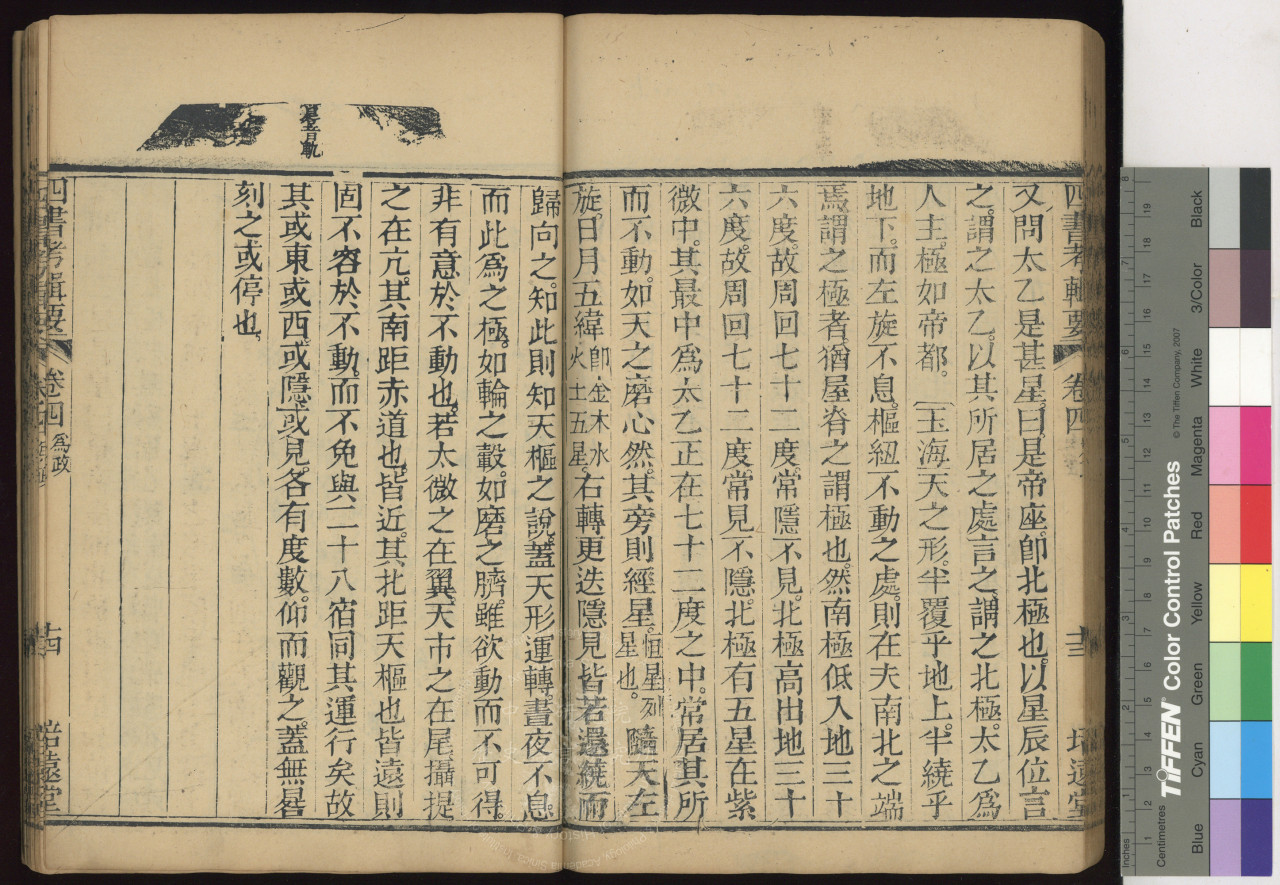 四書考輯要 卷四 十三 培遠堂
又問太乙是甚星曰是帝座即北極也以星辰位言
之謂之太乙以其所居之處言之謂之北極太乙為
人主極如帝都。〔玉海天之形半覆乎地上半繞乎
地下而左旋不息樞紐不動之處則在夫南北之端
焉謂之極者猶屋脊之謂極也然南極低入地三十
六度故周回七十二度常隱不見北極高出地三十
六度故周回七十二度常見不隱北極有五星在紫
微中其最中為太乙正在七十二度之中常居其所
而不動如天之磨心然其旁則經星恒星列星也。隨天左
旋日月五緯即金木水火土五星右轉更迭隱見皆若還繞而
歸向之知此則知天樞之說蓋天形運轉晝夜不息
而此為之極如輪之轂如磨之臍雖欲動而不可得
非有意於不動也若太微之在翼天市之在尾攝提
之在亢其南距赤道也皆近其北距天樞也皆遠則
固不容於不動而不免與二十八宿同其運行矣故
其或東或西或隱或見各有度數仰而觀之蓋無晷
刻之或停也
晷音軌
四書考輯要 卷四 為政 十四 培遠堂
Black
3/Color
White
Magenta
Red
Yellow
Green
Cyan
Blue
© The Tiffen Company, 2007
TIFFEN Color Control Patches
Centimetres
Inches